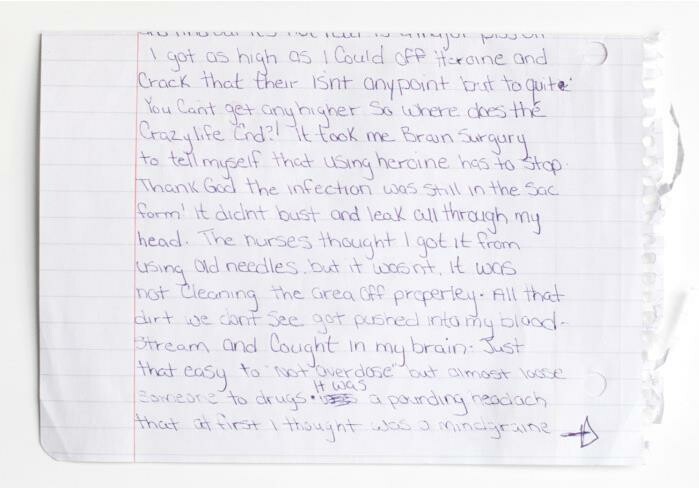 I got as high as I Could off Heroine and
Crack that their isnt anypoint but to quite
You Cant get anyhigher. So where does the
Crazylife End?! It took me Brain Surgury
to tell myself that using heroine has to Stop.
Thank God the infection was Still in the Sac
form! It didnt bust and leak all through my
head. The nurses thought I got it from
using old needles, but it wasnt. It was
not Cleaning the area off properley. All that
dirt we dont See got pushed into my blood-
stream and Cought in my brain. Just
that easy to "not overdose" but almost loose
someone to drugs. It was a pounding headach
that at first I thought was a mindgraine